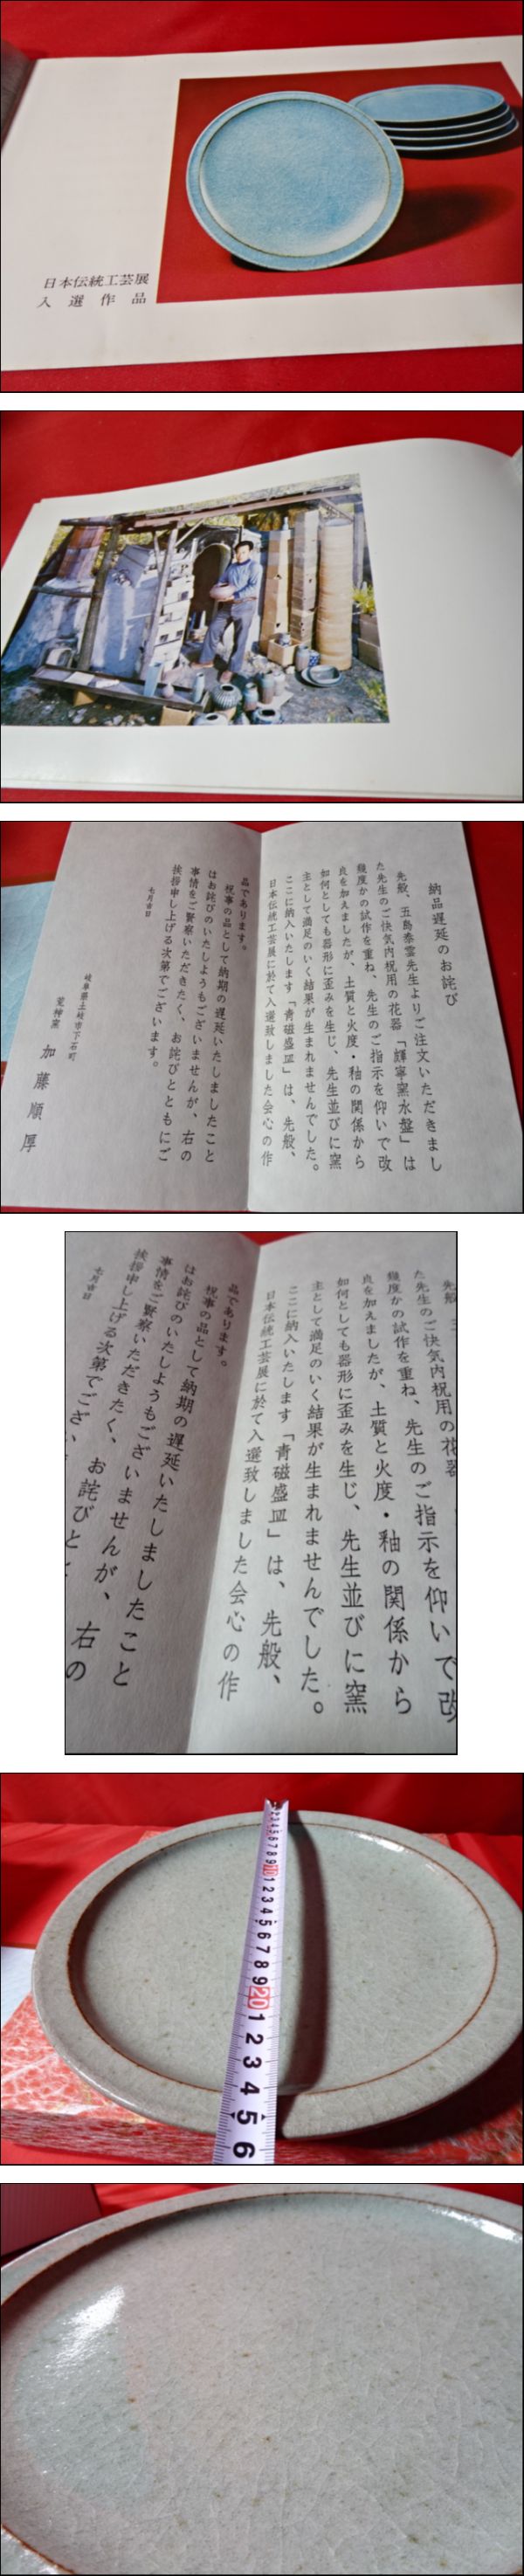 日本伝統工芸展
入選作品
納品遅延のお詫び
先般、五島泰雲先生よりご注文いただきまし
た先生のご快気内祝用の花器「輝寧窯水盤」は
幾度かの試作を重ね、先生のご指示を仰いで改
良を加えましたが、土質と火度・釉の関係から
如何としても器形に歪みを生じ、先生並びに窯
主として満足のいく結果が生まれませんでした。
ここに納入いたします「青磁盛皿」は、先般、
日本伝統工芸展に於て入選致しました会心の作
品であります。
祝事の品として納期の遅延いたしましたこと
はお詫びのいたしようもございませんが、右の
事情をご賢察いただきたく、お詫びとともにご
挨拶申し上げる次第でございます。
七月吉日
岐阜県土岐市下石町
窯 加藤順厚
先般
た先生のご快気内祝用の花器
幾度かの試作を重ね、先生のご指示を仰いで改
良を加えましたが、土質と火度・釉の関係から
如何としても器形に歪みを生じ、先生並びに窯
主として満足のいく結果が生まれませんでした。
ここに納入いたします「青磁盛皿」は、先般、
日本伝統工芸展に於て入選致しました会心の作
品であります。
祝事の品として納期の遅延いたしましたこと
はお詫びのいたしようもございませんが、右の
事情をご賢察いただきたく、お詫びと
挨拶申し上げる次第でござい
七月吉日
2 3 4 5 6 7 8 9 10 1 2 3 4 5 6 7 8 9 20 1 2 3 4 5 6